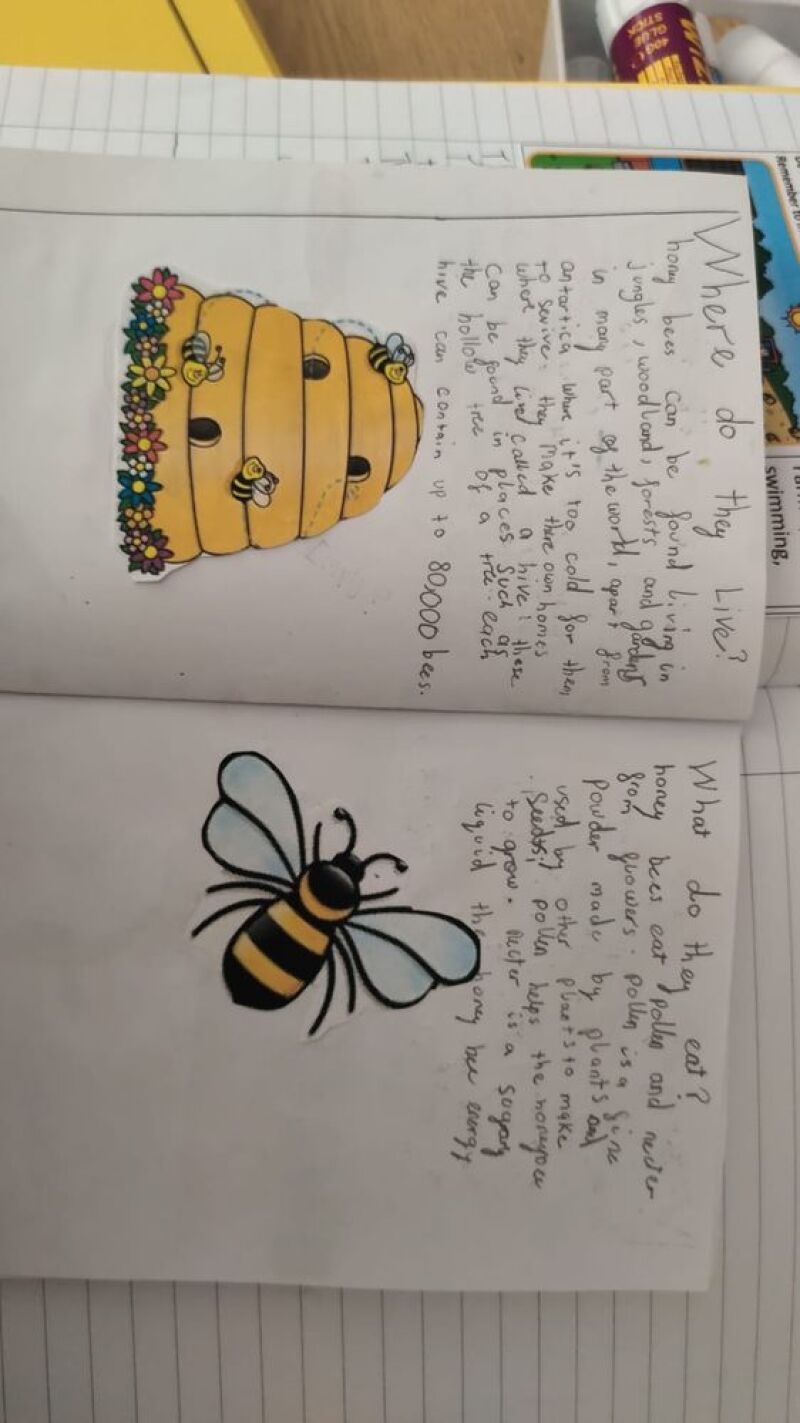 Where do they Live?
honey bees can be found living in
jungles, woodland, forests and gardens
in many part of the world, apart from
antartica where it's too cold for them
to sevive. they make there own homes
where they lived called a hive: these
can be found in places such as
the hollow tree of a tree. each
hive can contain up to 80,000 bees.
What do they eat?
honey bees eat pollen and necter
from flowers. pollen is a fine
powder made by plants and
used by other plants to make
seeds. pollen helps the honeybee
to grow. necter is a sugary
liquid the honey bee energy
swimming,
Remember to
40G
GLUE
STICK